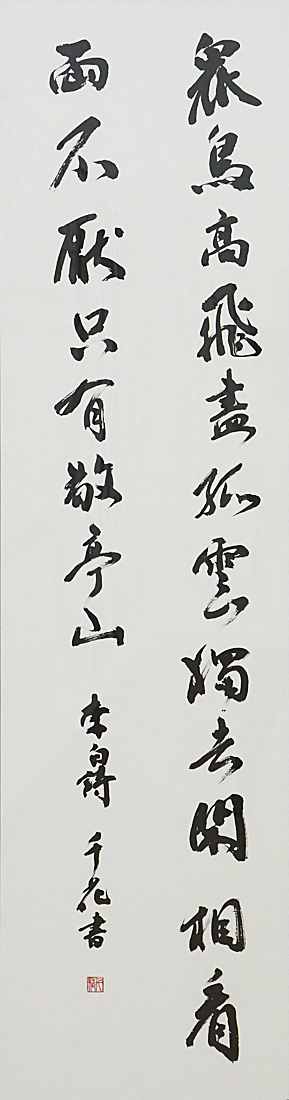 眾鳥高飛盡孤雲獨去閑相看
兩不厭只有敬亭山
李白詩 千花書